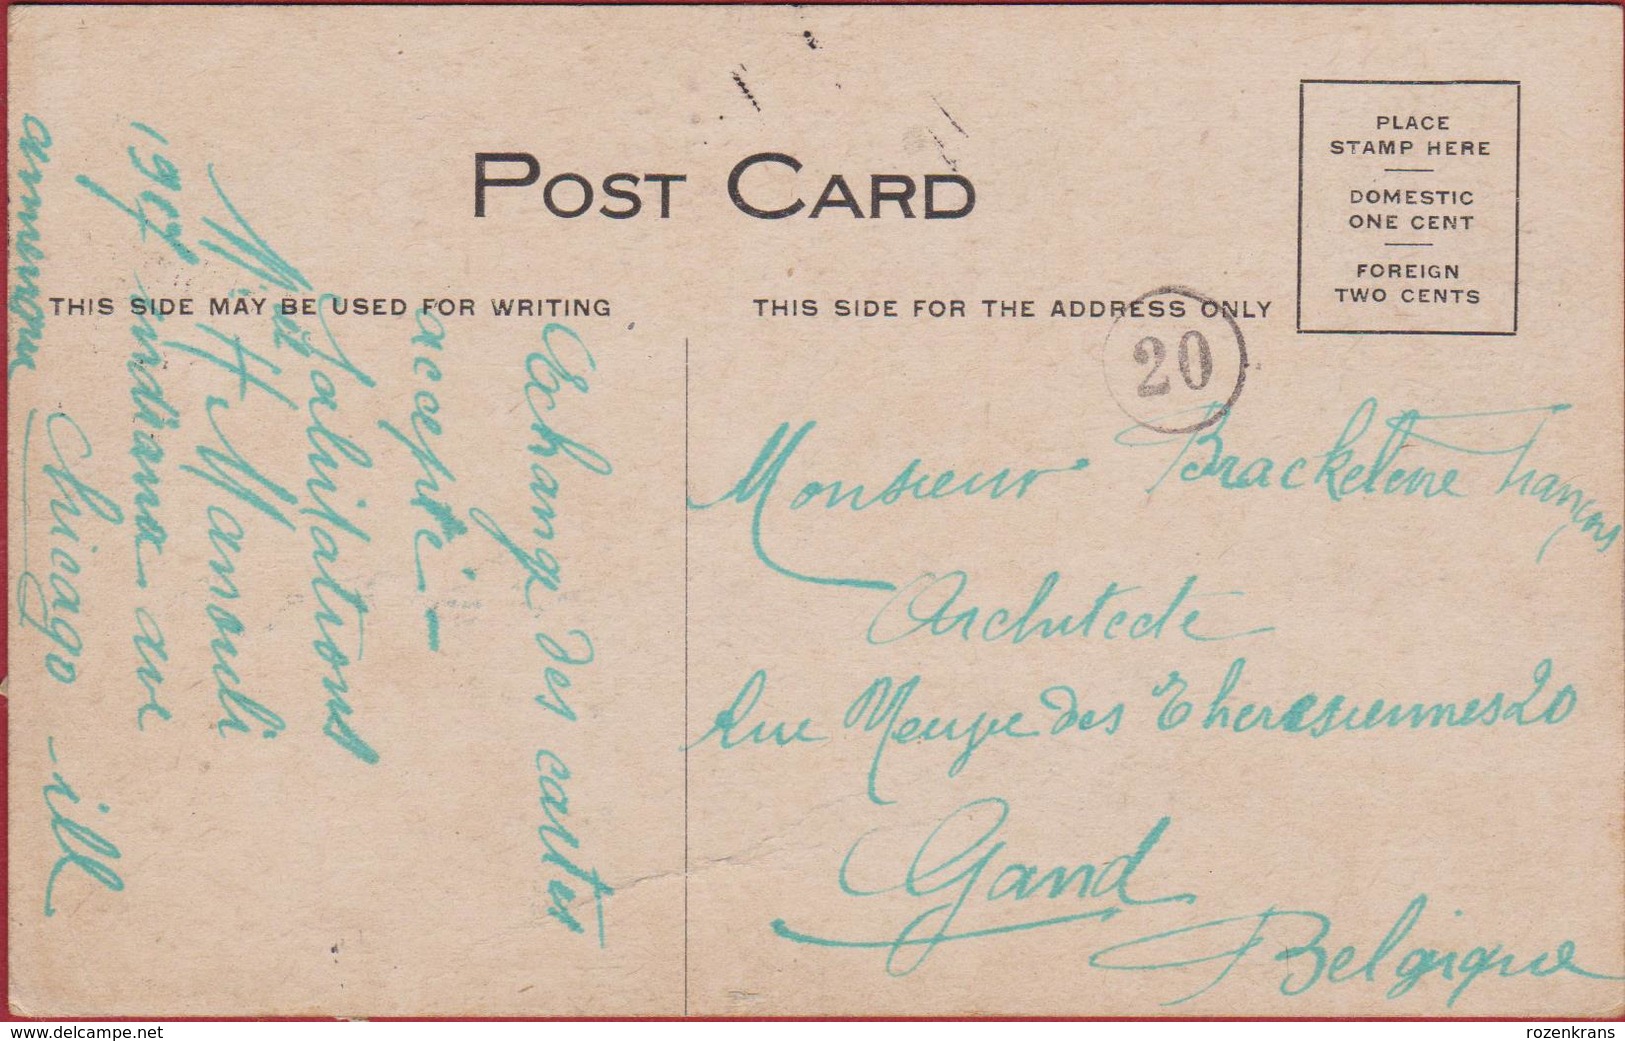 POST CARD
PLACE
STAMP HERE
DOMESTIC
ONE CENT
FOREIGN
TWO CENTS
THIS SIDE MAY BE USED FOR WRITING
THIS SIDE FOR THE ADDRESS ONLY
20
Echange des cartes
accepté —
Salutations
H Manouli
1907 indiana ave
Chicago - ill
Monsieur François
Architecte
Rue des Theresiennes 20
Gand
Belgique
www.delcampe.net
rozenkrans